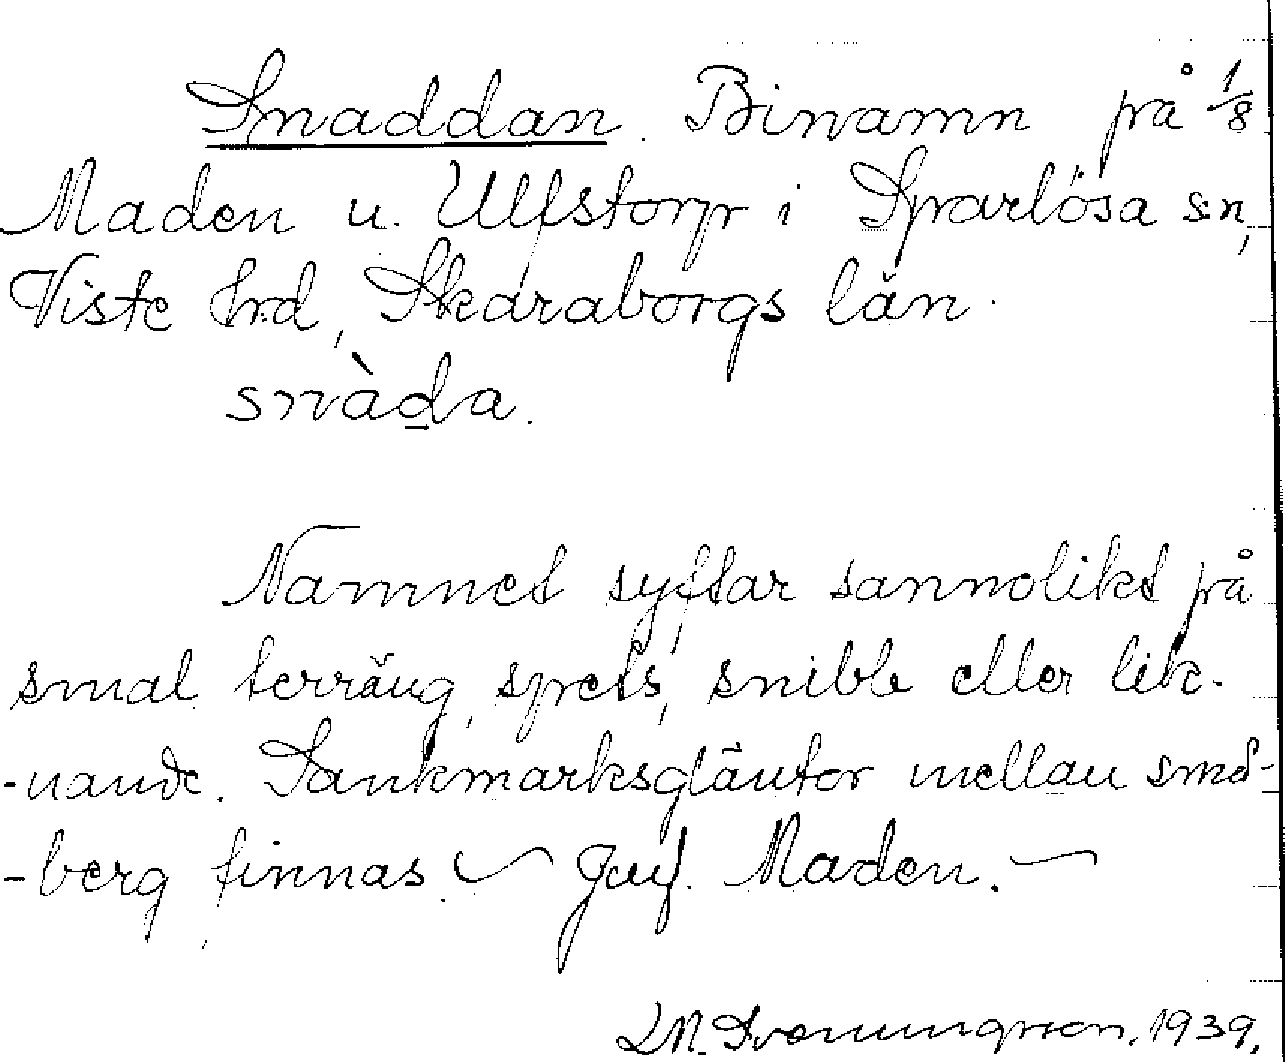 Snaddan. Binamn på 1/8
Maden u. Ulfstorp i Sparlösa sn,
Viste hrd, Skaraborgs län.
snàda.
Namnet syftar sannolikt på
smal terräng, spets, snibb eller lik-
-nande. Sankmarksgläntor mellan små-
-berg finnas. — Jmf. Maden. —
1939.